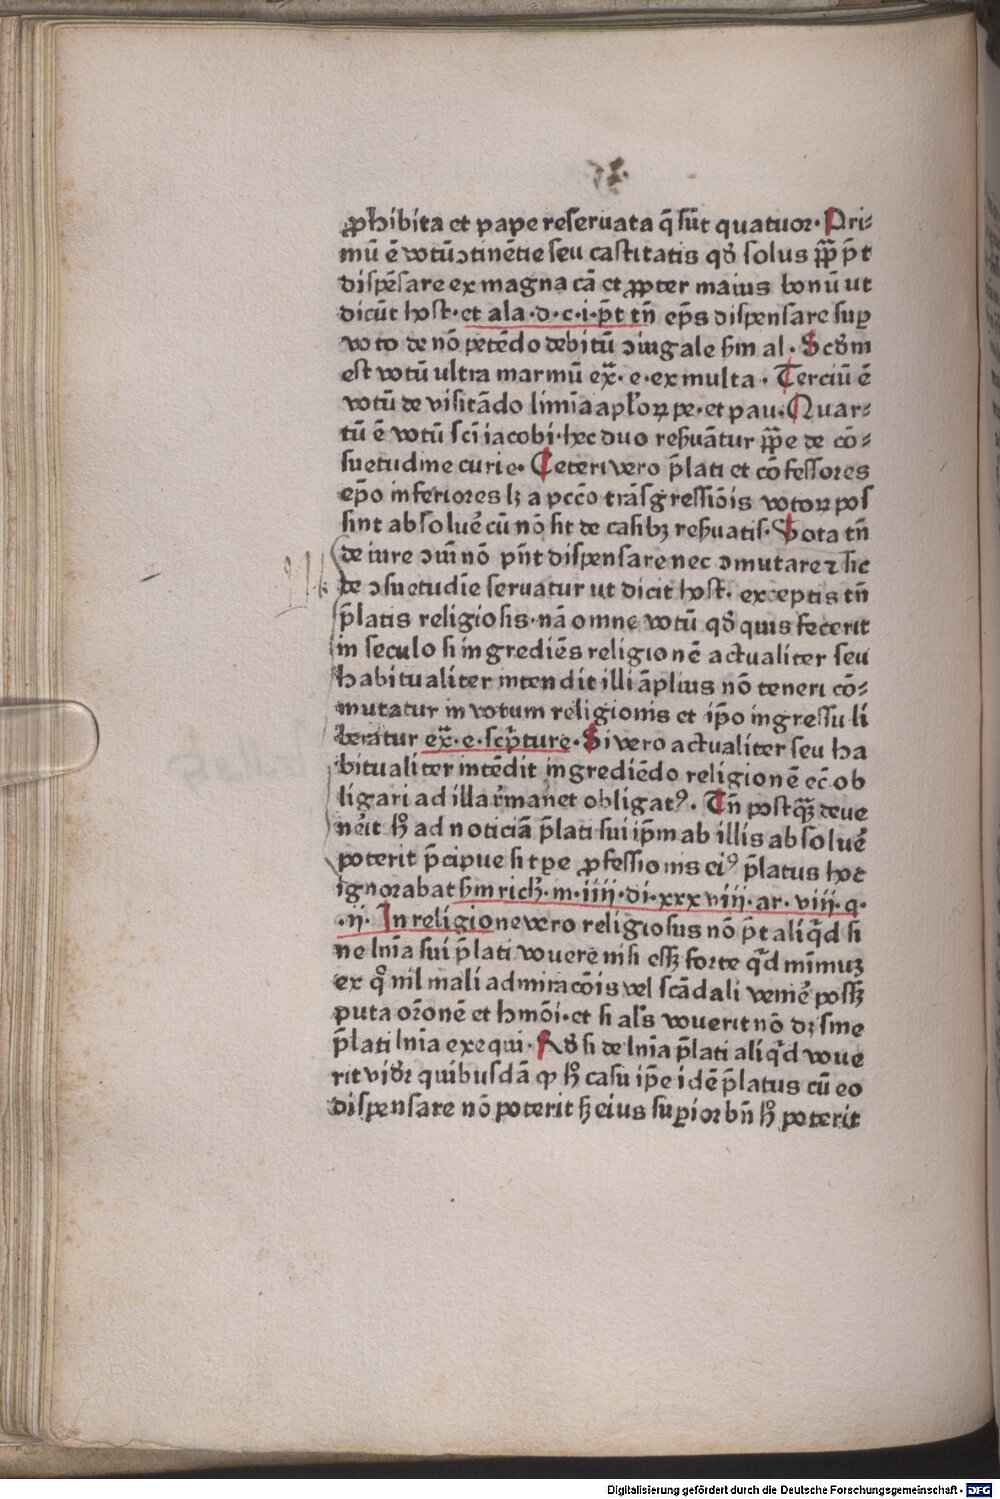 ꝓhibita et pape reseruata q̄ sūt quatuor· Pri⸗
mū ē votū ↄtinētie seu castitatis qđ solus pp̄ p̄t
dispēsare ex magna cā et ꝓpter maius bonū ut
dicūt host· et ala·d·c·i·p̄t tn̄ ep̄s dispensare suꝑ
voto de nō petēdo debitū ↄiugale ẜm al· Scđm
est votū ultra marinū ex̄· e·ex multa· Terciū ē
votū de visitādo limīa apl'oꝝ pe·et pau· Quar⸗
tū ē votū sc̄i iacobi·hec duo reẜuātur pp̄e de cō⸗
suetudine curie· Ceteri vero p̄lati et cōfessores
ep̄o inferiores lꝫ a pcc̄o trāsgressiōis votoꝝ pos
sint absoluē cū nō sit de casibꝫ reẜuatis· Vota tn̄
de iure ↄm̄i nō pn̄t dispensare nec ↄmutare ⁊ sic
de ↄsuetudīe seruatur ut dicit host· exceptis tn̄
p̄latis religiosis·nā omne votū qđ quis fecerit
in seculo si ingrediēs religionē actualiter seu
habitualiter intendit illi āplius nō teneri cō⸗
mutatur in votum religionis et ip̄o ingressu li
beratur ex̄·e·scp̄ture· Si vero actualiter seu ha
bitualiter intēdit ingrediēdo religionē ec̄ ob
ligari ad illa r̄manet obligatꝰ· Tn̄ postq̄ꝫ deue
nēit h̄ ad noticiā p̄lati sui ip̄m ab illis absoluē
poterit p̄cipue si tꝑe ꝓfessionis eiꝰ p̄latus hoc
ignorabat ẜm rich̄·m·iiii·di·xxxviii·ar·viii·q·
·ii· In religione vero religiosus nō p̄t aliq̄d si
ne lnīa sui p̄lati vouere nisi essꝫ forte q̄d mīmuꝫ
ex qͦ nil mali admiracōis vel scādali veniē possꝫ
puta or̄onē et hmōi·et si al's vouerit nō dꝫ sine
p̄lati lnīa exequi· Ađ si de lnīa p̄lati aliq̄d voue
rit viđr quibusdā ꝙ h̄ casu ip̄e idē p̄latus cū eo
dispensare nō poterit sꝫ eius suꝑiorbn̄ h̄ poterit
Digitalisierung gefördert durch die Deutsche Forschungsgemeinschaft · DFG